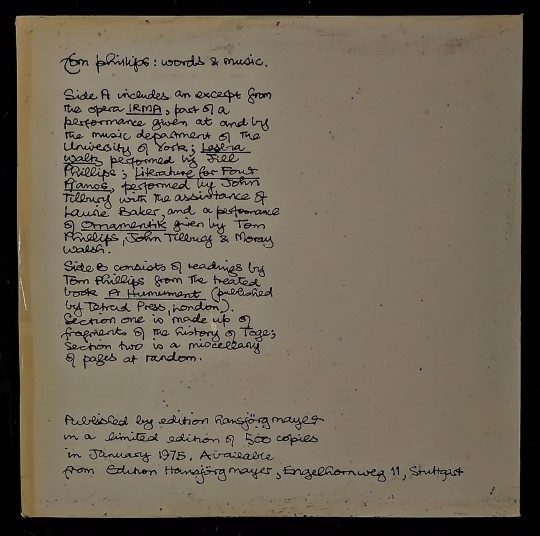 Tom phillips: words & music.
Side A includes an excerpt from
the opera IRMA; part of a
performance given at and by
the music department of the
University of York; Lesbia
Waltz performed by Jill
Phillips; Literature for Four
Pianos, performed by John
Tilbury with the assistance of
Laurie Baker, and a performance
of Ornamentik given by Tom
Phillips, John Tilbury & Moray
Walsh.
Side B consists of readings by
Tom Phillips from the treated
book A Humument (published
by Tetrad Press, London).
Section one is made up of
fragments of the history of Toge;
Section two is a miscellany
of pages at random.
Published by edition hansjörg mayer
in a limited edition of 500 copies
in January 1975. Available
from Edition Hansjörg mayer, Engelhornweg 11, Stuttgart